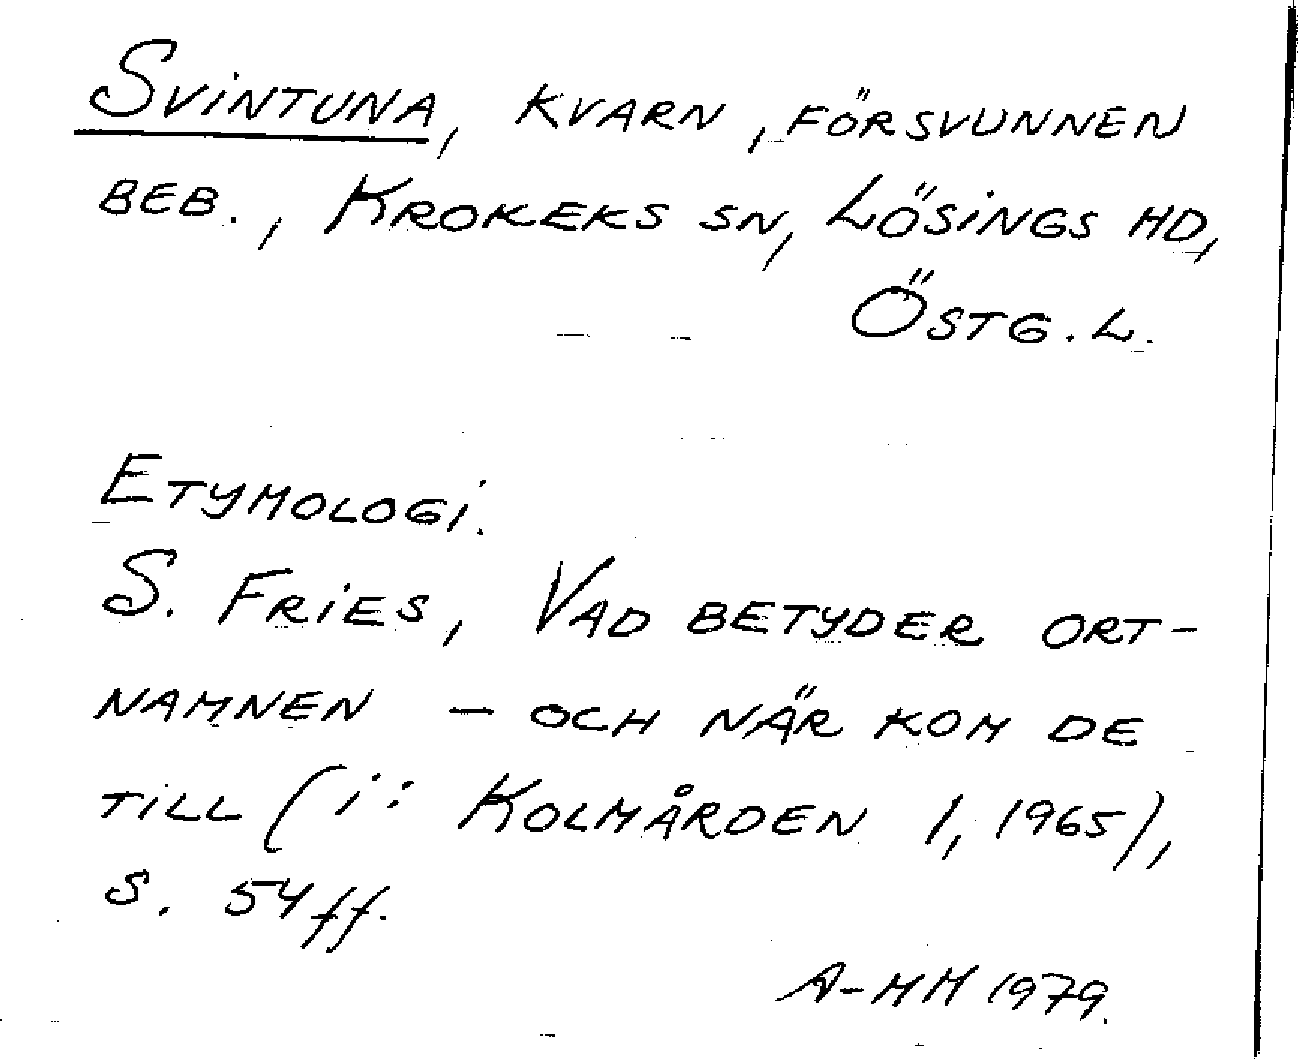 Svintuna, kvarn, försvunnen
beb., Krokeks sn, Lösings hd,
Östg. L.
Etymologi.
S. Fries, Vad betyder ort-
namnen – och när kom de
till (i: Kolmården 1, 1965),
s. 54 ff.
A-MM 1979.